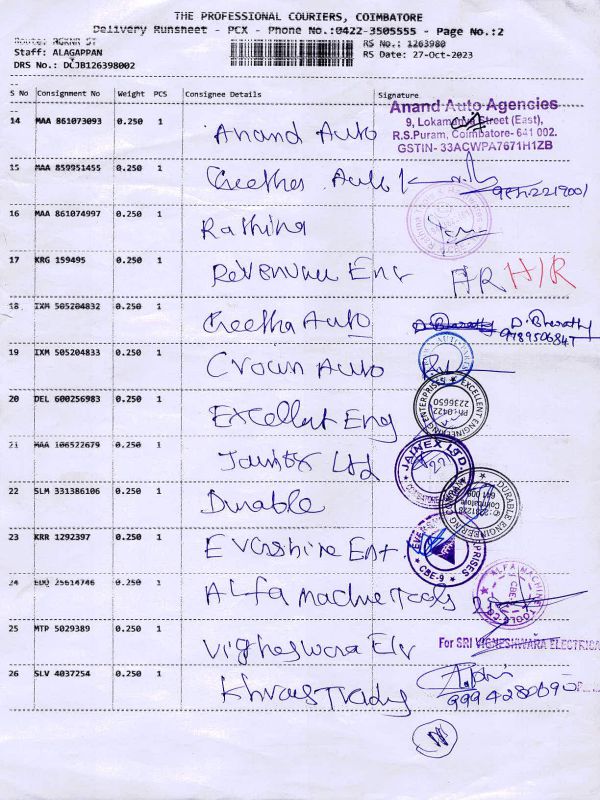 THE PROFESSIONAL COURIERS, COIMBATORE
Delivery Runsheet - PCX - Phone No.:0422-3505555 - Page No.:2
Staff: ALAGAPPAN
RS No.: 1263980
DRS No.: DLJB126398002
RS Date: 27-Oct-2023
S No Consignment No Weight PCS Consignee Details Signature
14 MAA 861073093 0.250 1 Anand Auto
Anand Auto Agencies
9, Lokamanya Street (East),
R.S.Puram, Coimbatore- 641 002.
GSTIN- 33ACWPA7671H1ZB
15 MAA 859951455 0.250 1 Geetha Auto
16 MAA 861074997 0.250 1 Rathina
17 KRG 159495 0.250 1 Revenuu Enr HR H/R
18 IXM 505204832 0.250 1 Geetha Auto D. Bharathy D. Bharathy
9789506847
19 IXM 505204833 0.250 1 Crown Auto
20 DEL 600256983 0.250 1 Excellent Eng
EXCELLENT ENGINEERING ENTERPRISES
PH: 0422
2236650
21 MAA 106522679 0.250 1 Jainex Ltd
JAINEX LTD.
22 SLM 331386106 0.250 1 Durable
DURABLE ENGINEERING COMPANY
Coimbatore
641 009
23 KRR 1292397 0.250 1 Evershine Ent.
CBE-9
24 EDQ 25614746 0.250 1 Alfa Machine Tools
ALFA MACHINE TOOLS CO
25 MTP 5029389 0.250 1 Vigheswara Elr
For SRI VIGNESHWARA ELECTRICA
26 SLV 4037254 0.250 1 Khivraj Trady
9994280690